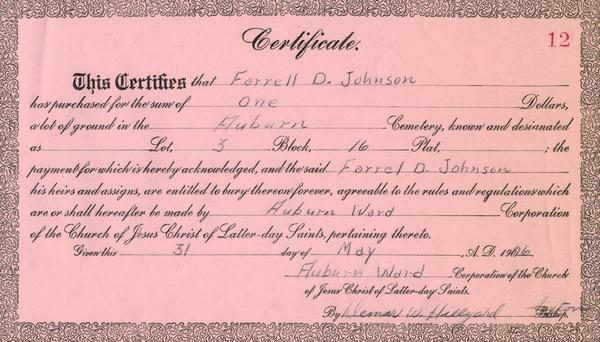 Certificate.
12
This Certifies that Farrell D. Johnson
has purchased for the sum of One Dollars,
a lot of ground in the Auburn Cemetery, known and desianated
as Lot, 3 Block, 16 Plat, ; the
payment for which is hereby acknowledged, and the said Farrel D. Johnson
his heirs and assigns, are entitled to bury thereon forever, agreeable to the rules and regulations which
are or shall hereafter be made by Auburn Ward Corporation
of the Church of Jesus Christ of Latter-day Saints, pertaining thereto.
Given this 31 day of May , A. D. 19
Auburn Ward Corporation of the Church
of Jesus Christ of Latter-day Saints.
By W. Hillyard Bishop.